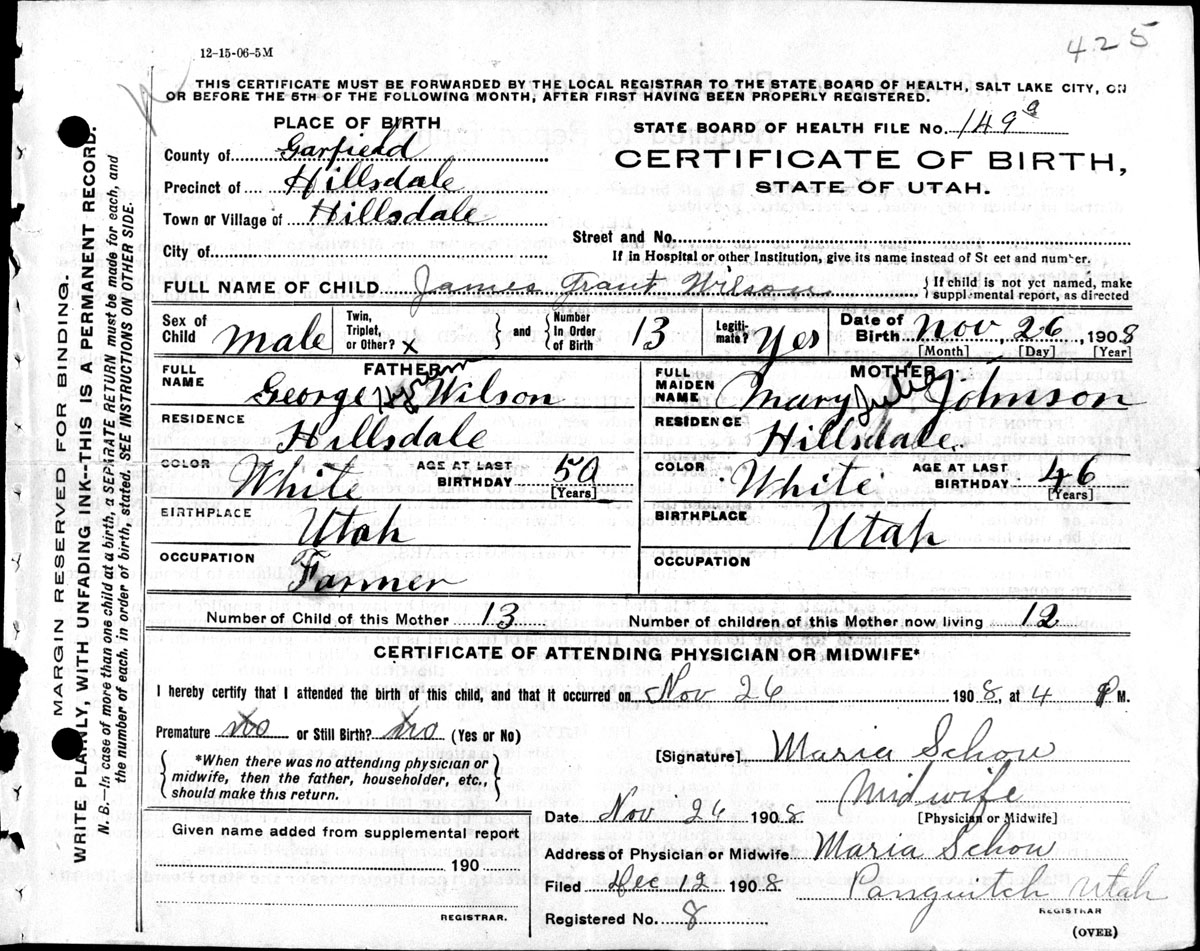 425
12-15-06-5M
THIS CERTIFICATE MUST BE FORWARDED BY THE LOCAL REGISTRAR TO THE STATE BOARD OF HEALTH, SALT LAKE CITY, ON
OR BEFORE THE 5TH OF THE FOLLOWING MONTH, AFTER FIRST HAVING BEEN PROPERLY REGISTERED.
PLACE OF BIRTH
STATE BOARD OF HEALTH FILE No. 149a
County of Garfield
CERTIFICATE OF BIRTH,
Precinct of Hillsdale
STATE OF UTAH.
Town or Village of Hillsdale
Street and No.
City of
If in Hospital or other Institution, give its name instead of St eet and number.
FULL NAME OF CHILD James Grant Wilson { If child is not yet named, make
supplemental report, as directed
Sex of Child Male
Twin, Triplet, or Other? x } and { Number In Order of Birth 13
Legiti-mate? Yes
Date of Birth Nov, 26, 1908
[Month] [Day] [Year]
FATHER
FULL NAME George Wilson
RESIDENCE Hillsdale
COLOR White AGE AT LAST BIRTHDAY 50
[Years]
BIRTHPLACE Utah
OCCUPATION Farmer
MOTHER
FULL MAIDEN NAME Mary Julia Johnson
RESIDENCE Hillsdale
COLOR White AGE AT LAST BIRTHDAY 46
[Years]
BIRTHPLACE Utah
OCCUPATION
Number of Child of this Mother 13 Number of children of this Mother now living 12
CERTIFICATE OF ATTENDING PHYSICIAN OR MIDWIFE*
I hereby certify that I attended the birth of this child, and that it occurred on Nov 26 1908, at 4 P M.
Premature no or Still Birth? no (Yes or No)
{ *When there was no attending physician or
midwife, then the father, householder, etc.,
should make this return. }
[Signature] Maria Schow
Midwife
[Physician or Midwife]
Date Nov 26 1908
Given name added from supplemental report
190
REGISTRAR.
Address of Physician or Midwife Maria Schow
Filed Dec 12 1908 Panguitch Utah
REGISTRAR
Registered No. 8
(OVER)
MARGIN RESERVED FOR BINDING.
WRITE PLAINLY, WITH UNFADING INK--THIS IS A PERMANENT RECORD.
N. B.—In case of more than one child at birth, a SEPARATE RETURN must be made for each, and
the number of each, in order of birth, stated. SEE INSTRUCTIONS ON OTHER SIDE.